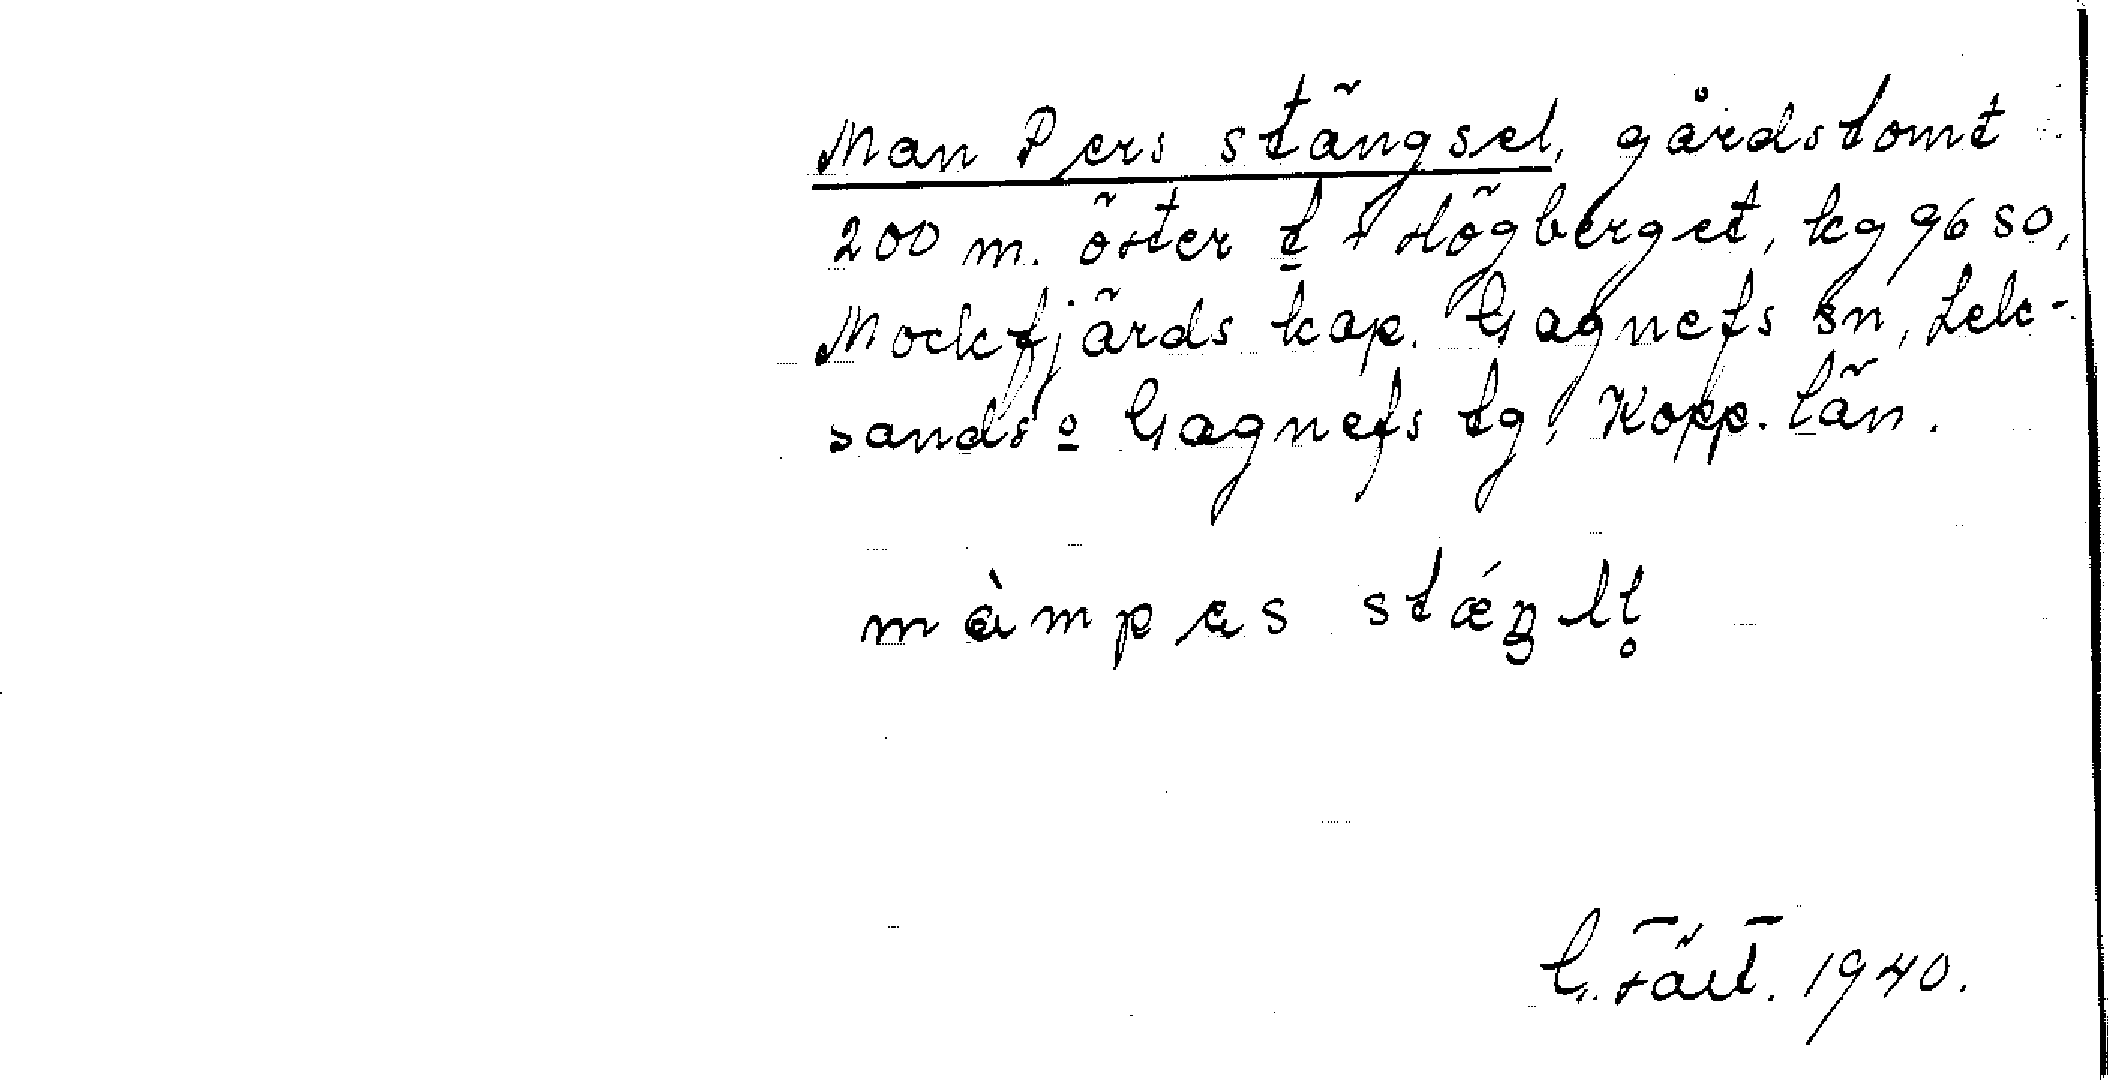 Man Pers stängsel, gårdstomt
200 m. öster t Högberget, kg 9650,
Mockfjärds kap. Gagnefs sn, Lek-
sands o Gagnefs tg, Kopp. län.
màmpas stǽŋlt̥
G. 1940.